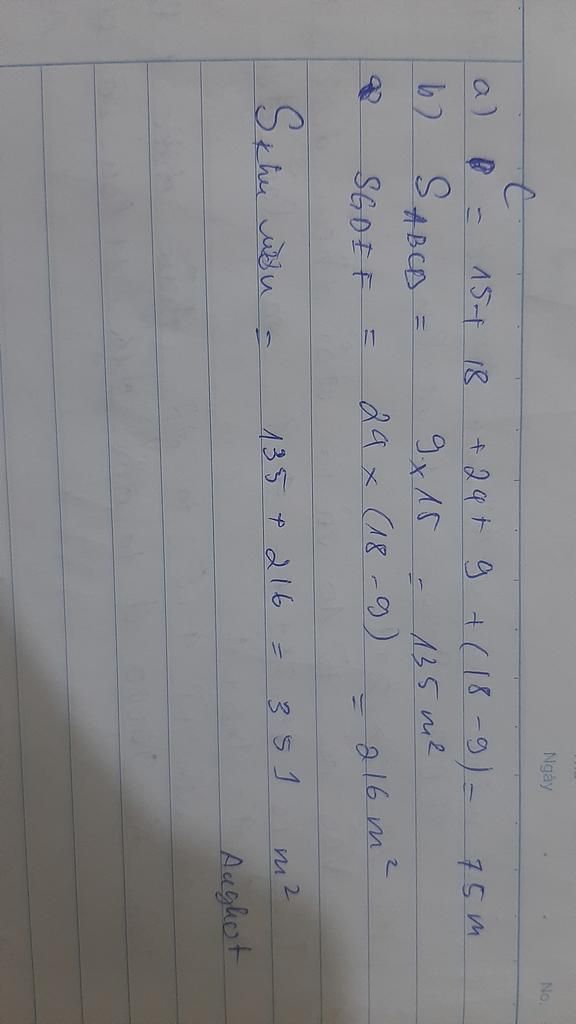 Ngày
No.
a) C = 15 + 18 + 24 + 9 + (18 - 9) = 75 m
b) SABCD = 9 x 15 = 135 m²
SGDIF = 24 x (18 - 9) = 216 m²
Skhu vườn = 135 + 216 = 351 m²